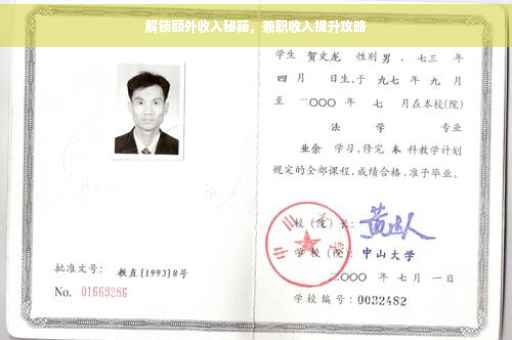 解锁额外收入秘籍，兼职收入提升攻略
学生 贺文龙 性别 男 、七三 年
四 月 日生,于 九七 年 九 月
至 二〇〇〇 年 七 月在本校(院)
法 学 专业
业余 学习,修完 本 科教学计划
规定的全部课程,成绩合格,准予毕业。
校(院)长:
学校(院): 中山大学
二〇〇〇 年 七 月 一 日
学校编号: 0032482
批准文号: 教直[1993]8号
No. 01669286